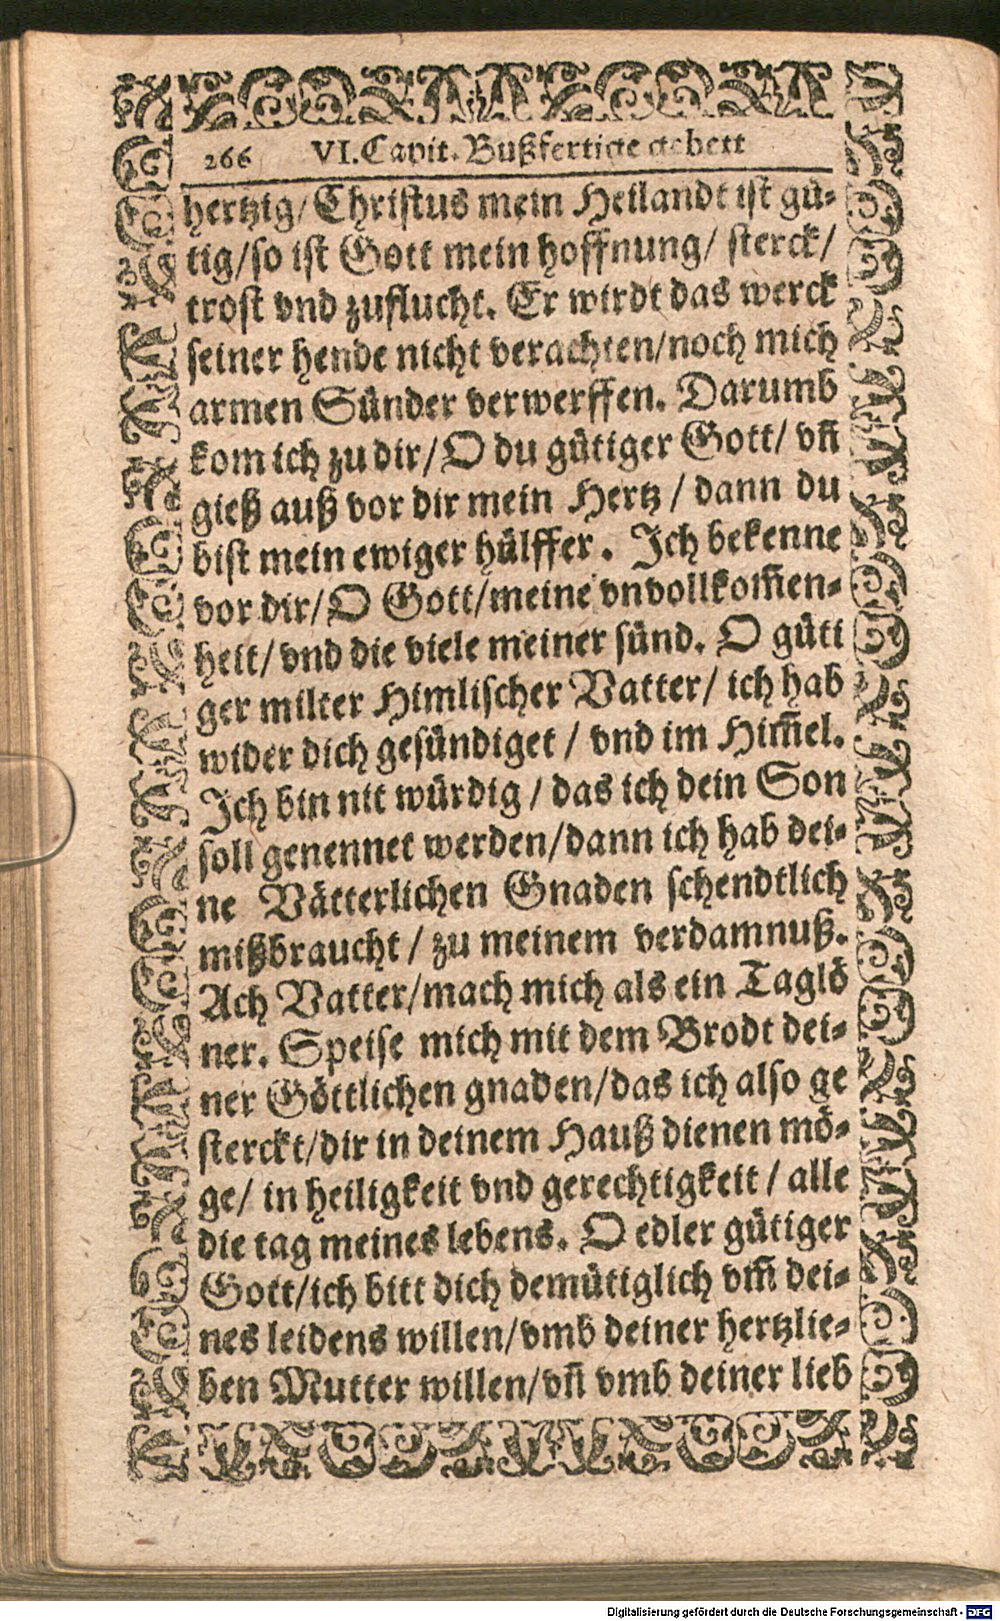 266 VI. Capit. Bußfertige gebett
hertzig/ Christus mein Heilandt ist gü-
tig/so ist Gott mein hoffnung/ sterck/
trost vnd zuflucht. Er wirdt das werck
seiner hende nicht verachten/noch mich
armen Sünder verwerffen. Darumb
kom ich zu dir/ O du gütiger Gott/ vn̄
gieß auß vor dir mein Hertz / dann du
bist mein ewiger hülffer. Ich bekenne
vor dir/ O Gott/meine vnvollkom̄en-
heit/ vnd die viele meiner sünd. O güti
ger milter Himlischer Vatter/ ich hab
wider dich gesündiget / vnd im Him̄el.
Ich bin nit würdig / das ich dein Son
soll genennet werden/dann ich hab dei-
ne Vätterlichen Gnaden schendtlich
mißbraucht / zu meinem verdamnuß.
Ach Vatter/mach mich als ein Taglö
ner. Speise mich mit dem Brodt dei-
ner Göttlichen gnaden/das ich also ge
sterckt/dir in deinem Hauß dienen mö-
ge/ in heiligkeit vnd gerechtigkeit / alle
die tag meines lebens. O edler gütiger
Gott/ich bitt dich demütiglich vm̄ dei-
nes leidens willen/vmb deiner hertzlie-
ben Mutter willen/vn̄ vmb deiner lieb
Digitalisierung gefördert durch die Deutsche Forschungsgemeinschaft - DFG